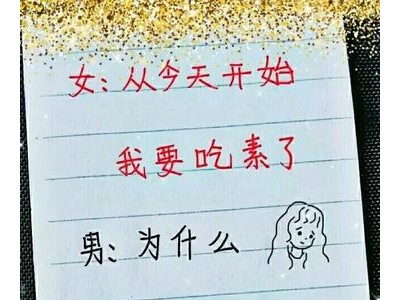 女:从今天开始
我要吃素了
男:为什么